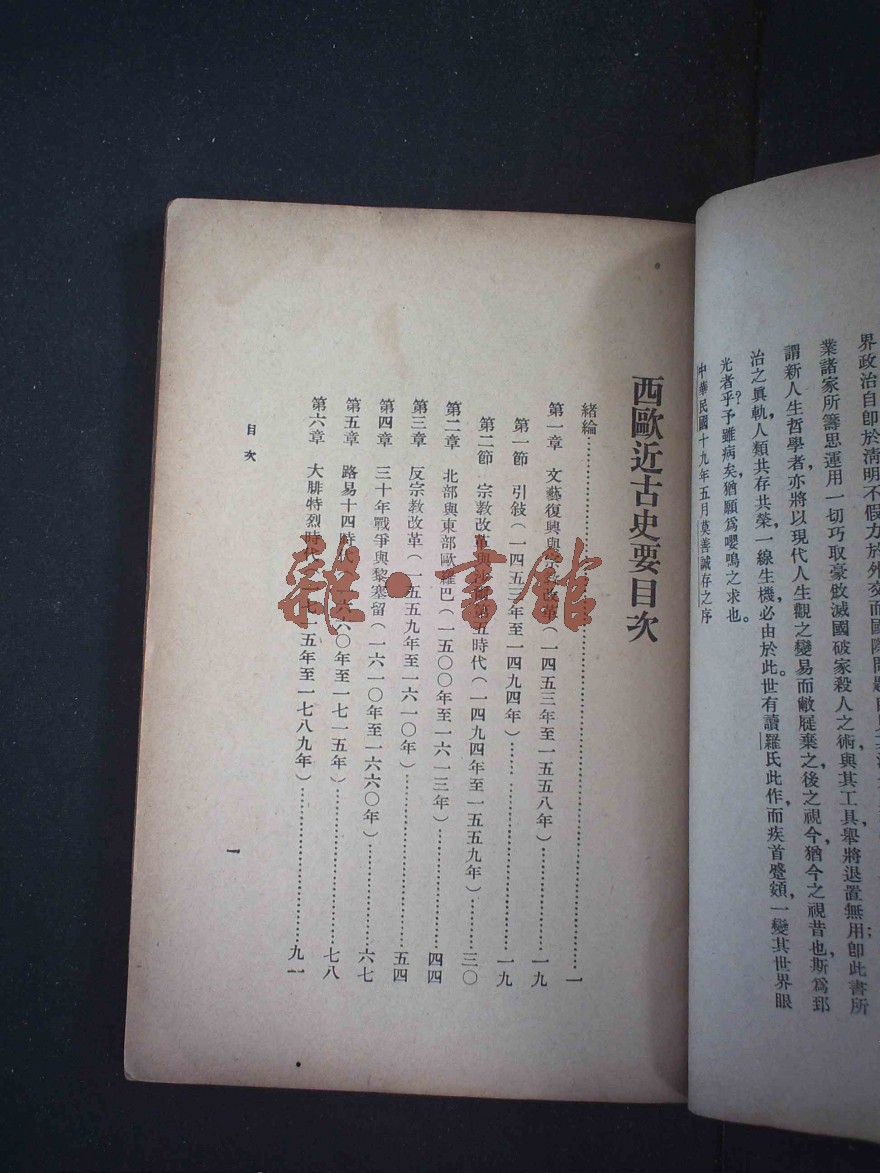 界政治自卽於淸明不假力於外交而國際問題
業諸家所籌思運用一切巧取豪斂滅國破家殺人之術與其工具舉將退置無用卽此書所
謂新人生哲學者亦將以現代人生觀之變易而敝屣棄之後之視今猶今之視昔也斯爲郅
治之眞軌人類共存共榮一線生機必由於此世有讀羅氏此作而疾首蹙頞一變其世界眼
光者乎？予雖病矣猶願爲嚶鳴之求也。
中華民國十九年五月莫善誠存之序
西歐近古史要目次
緒論⋯⋯一
第一章 文藝復興與宗教改革（一四五三年至一五五八年）⋯⋯一九
第一節 引敍（一四五三年至一四九四年）⋯⋯一九
第二節 宗教改革與沙 第五時代（一四九四年至一五五九年）⋯⋯三〇
第二章 北部與東部歐羅巴（一五〇〇年至一六一三年）⋯⋯四四
第三章 反宗教改革（一五五九年至一六一〇年）⋯⋯五四
第四章 三十年戰爭與黎塞留（一六一〇年至一六六〇年）⋯⋯六七
第五章 路易十四時代（一六六〇年至一七一五年）⋯⋯七八
第六章 大腓特烈時代（一七一五年至一七八九年）⋯⋯九一
目次
一
雜·書館